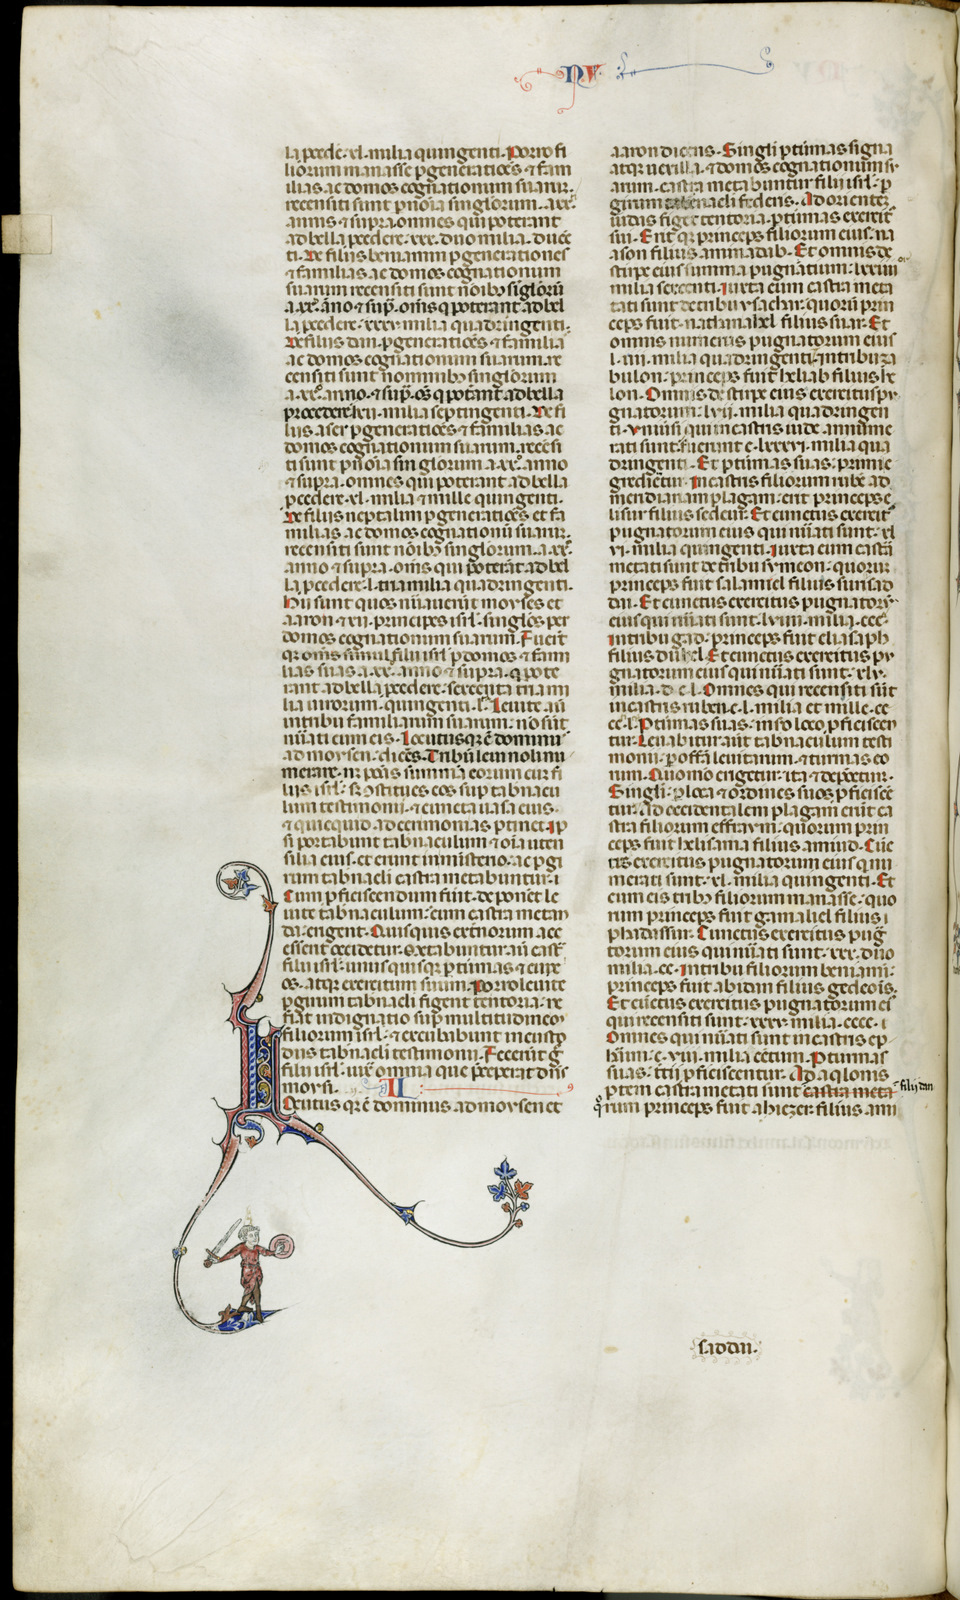 NV
la p̄cedē· xl· milia quingenti· Porro fi
liorum manasse p generatiōes ⁊ fam
ilias· ac domos cognationum suarū·
recensiti sunt p nōia singlorum· a xxº
annis ⁊ supra· omnes qui poterant
ad bella p̄cedere· xxx· duo milia· ducē
ti· De filiis beniamin p generationes
⁊ familias ac domos cognationum
suarum recensiti sunt nōibꝫ siglorū
a xxº ānno ⁊ sup̄· om̄s q poterant ad bel
la p̄cedere· xxxv· milia quadringenti·
De filiis dan· p generatiōes ⁊ familias
ac domos cognationum suarum· re
censiti sunt nominibꝫ singlorum
a xxº· anno· ⁊ sup̄· oēs q potant ad bella
procedere lxii· milia septingenti· De fi
liis aser p generatiōes ⁊ familias· ac
domos cognationum suarum· recēsi
ti sunt p nōia singlorum· a xxº· anno
⁊ supra· omnes qui poterant ad bella
p̄cedere· xl· milia ⁊ mille quingenti·
De filiis neptalim p generatiōes et fa
milias· ac domos cognationū suarū·
recensiti sunt nōibꝫ singlorum· a xxº·
anno ⁊ supra· om̄s qui poterāt ad bel
la p̄cedere· l· tria milia quadringenti·
Hii sunt quos nūauerūt moyses et
aaron· ⁊ xii· principes isrl· singlos per
domos cognationum suarum· Fuerūt
qꝫ om̄s simul filii isrl p domos ⁊ fam
lias suas a· xx· anno ⁊ supra· q pote
rant ad bella p̄cedere· sexcenta tria mi
lia uirorum· quingenti· l· Leuite aū
in tribu familiarum suarum· nō sūt
nūati cum eis· Locutusqꝫ ē dominus
ad moysen· dicēs· Tribū leui noli nu
merare· nꝫ pones summā eorum cum fi
liis isrl· sꝫ ostitues eos sup tabnacu
lum testimonii· ⁊ cuncta uasa eius·
⁊ quicquid ad cerimonias ptinet· Ip
si portabunt tabnaculum ⁊ oīa uten
silia eius· et erunt in ministerio· ac p gi
rum tabnacli castra metabuntur·
Cum p̄ficiscendum fuit· deponēt le
uite tabnaculum· cum castra metan
da· erigent· Quisquis extnorum acc
esserit occidetur· Metabuntur aū cast̄
filii isrl· unusquisqꝫ p turmas ⁊ cune
os· atqꝫ exercitum suum· Porro leuite
p girum tabnacli figent tentoria· ne
fiat indignatio sup multitudinem
filiorum isrl· ⁊ excubabunt in custo
diis tabnacli testimonii· Fecerūt g̊
filii isrl· iuxᵃ omnia que p̄ceperat dn̄s
moysi· II
Locutus qꝫ ē dominus ad moysen et
aaron dicens· Singli p turmas signa
atqꝫ uexilla· ⁊ domos cognationum su
arum· castra metabuntur filii isrl· p
girum tabernacli federis· Ad orientem
iudas figet tentoria· p turmas exercit̄
sui· Erit qꝫ princeps filiorum eius· na
ason filius aminadab· Et omnis de
stirpe eius summa pugnātium· lxxiiii
milia sexcenti· Iuxta eum castra meta
tati sunt de tribu ysachar· quorū prin
ceps fuit· nathanahel filius suar· Et
omnis numerus pugnatorum eius
l· iiii· milia quadringenti· In tribu za
bulon· princeps fuit heliab filius he
lon· Omnis de stirpe eius exercitus pu
gnatorum· lvii· milia quadringen
ti· Vniuersi qui in castris iude annume
rati sunt· fuerunt c· lxxxvi· milia qua
dringenti· Et p turmas suas· primi e
gredientur· In castris filiorum rubē ad
meridianam plagam· erit princeps e
lisur filius sedeur· Et cunctus exercit̄
pugnatorum eius qui nūati sunt· xl
vi· milia quingenti· Iuxta eum castrā
metati sunt de tribu symeon· quorum
princeps fuit salamiel filius surisad
dai· Et cunctus exercitus pugnatorum
eius qui nūati sunt· lviiii· milia· ccc·
In tribu gad· princeps fuit eliasaph
filius duhel· Et cunctus exercitus pu
gnatorum eius qui nūati sunt· xlv·
milia· d· c· l· Omnes qui recensiti sūt
in castris ruben· c· l· milia et mille· cc
cc· l· P turmas suas· in so loco p̄ficiscen
tur· Leuabitur aūt tabnaculum testi
monii· p offa leuitarum· ⁊ turmas eo
rum· Quomō erigetur· ita ⁊ deponetur·
Singli· p loca ⁊ ordines suos p̄ficiscē
tur· Ad occidentalem plagam erūt ca
stra filiorum effraym· quorum prin
ceps fuit helisama filius amiud· Cūc
tus exercitus pugnatorum eius qui nu
merati sunt· xl· milia quingenti· Et
cum eis tribꝫ filiorum manasse· quo
rum princeps fuit gamaliel filius
phadassur· Cunctus exercitus pug̃
torum eius qui nūati sunt· xxx· duo
milia· cc· In tribu filiorum beniamī·
princeps fuit abidan filius gedeōis·
Et cūctus exercitus pugnatorum ei
qui recensiti sunt· xxxv· milia· cccc·
Omnes qui nūati sunt in castris ep
hūm· c· viii· milia cētum· P turmas
suas· t̄tii p̄ficiscentur· Ad aqlonis
ptem castra metati sunt castra meta filii dan
qͦrum princeps fuit ahiezer· filius ami
saddai·